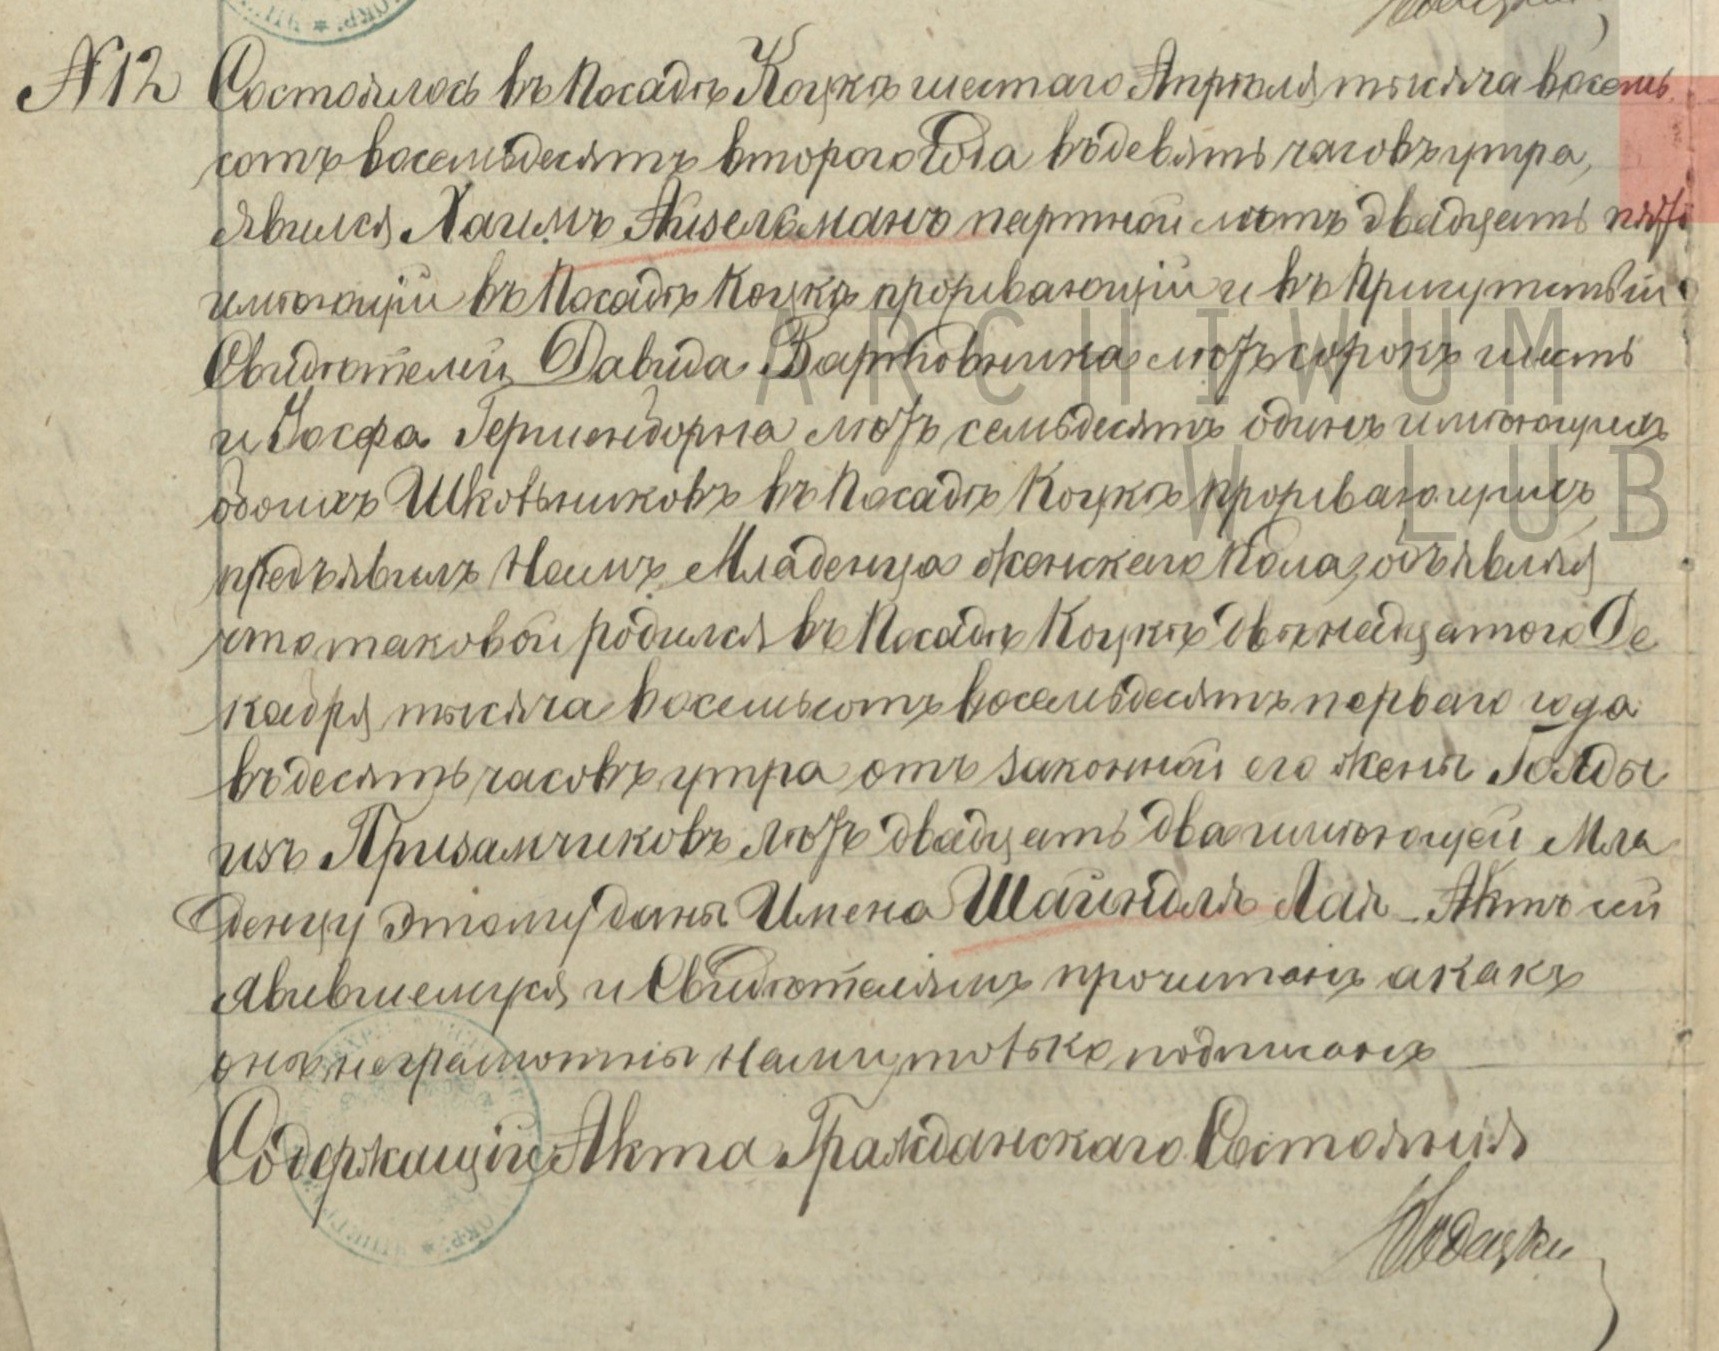 №12 Состоялось въ Посадѣ Коцкѣ шестаго Апрѣля тысяча восемь
сотъ восемьдесятъ второго Года въ девять часовъ утра,
явился Хаимъ Айзельманъ партной лѣтъ двадцать пять
имѣющій въ Посадѣ Коцкѣ проживающій и въ Присутствіи
Свидѣтелей Давида Вартовника лѣтъ сорокъ шесть
и Іосфа Гершендорна лѣтъ семьдесятъ одинъ имѣющихъ
обоихъ Школьниковъ въ Посадѣ Коцкѣ проживающихъ
предъявилъ Намъ Младенца женскаго Пола, объявляя
что таковой родился въ Посадѣ Коцкѣ двѣнадцатого Де
кабря тысяча восемьсотъ восемьдесятъ перваго года
въ десять часовъ утра отъ законной его жены Голды
изъ Призамчиковъ лѣтъ двадцать два имѣющей Мла
денцу этому даны Имена Шайндля Лая Актъ сей
явившемуся и Свидѣтелямъ прочитанъ а какъ
они неграмотны Нами только подписанъ
Содержащій Акта Гражданскаго Состоянія
ARCHIWUM
W LUB